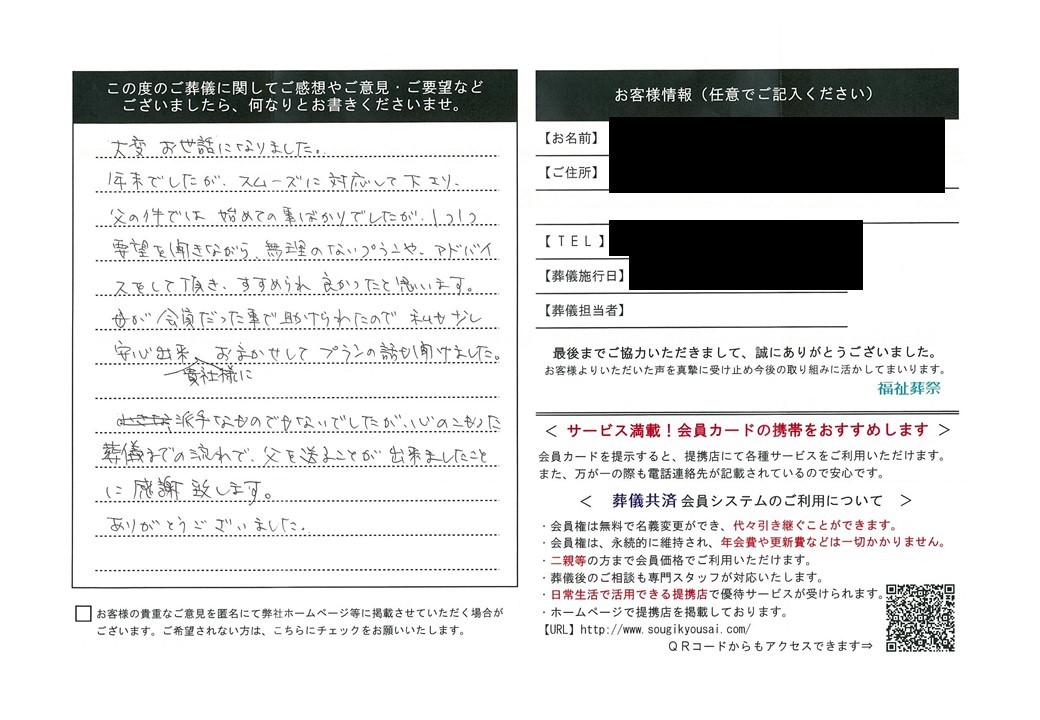 この度のご葬儀に関してご感想やご意見・ご要望など
ございましたら、何なりとお書きくださいませ。
大変 お世話になりました。
年末でしたが、スムーズに 対応して下さり、
父の件では 始めての事ばかりでしたが、1つ1つ
要望を聞きながら、無理のないプランや、アドバイ
スをして頂き、すすめられ 良かったと思います。
母が 会員だった事で助けられたので 私も少し
安心出来、おまかせして プランの話も聞けました。
貴社様に
派手なものでもないでしたが、心のこもった
葬儀までの流れで、父を送ることが 出来ましたこと
に 感謝 致します。
ありがとうございました。
お客様の貴重なご意見を匿名にて弊社ホームページ等に掲載させていただく場合が
ございます。ご希望されない方は、こちらにチェックをお願いいたします。
お客様情報（任意でご記入ください）
【お名前】
【ご住所】
【ＴＥＬ】
【葬儀施行日】
【葬儀担当者】
最後までご協力いただきまして、誠にありがとうございました。
お客様よりいただいた声を真摯に受け止め今後の取り組みに活かしてまいります。
福祉葬祭
＜ サービス満載！会員カードの携帯をおすすめします ＞
会員カードを提示すると、提携店にて各種サービスをご利用いただけます。
また、万が一の際も電話連絡先が記載されているので安心です。
＜ 葬儀共済 会員システムのご利用について ＞
・会員権は無料で名義変更ができ、代々引き継ぐことができます。
・会員権は、永続的に維持され、年会費や更新費などは一切かかりません。
・二親等の方まで会員価格でご利用いただけます。
・葬儀後のご相談も専門スタッフが対応いたします。
・日常生活で活用できる提携店で優待サービスが受けられます。
・ホームページで提携店を掲載しております。
【URL】http://www.sougikyousai.com/
ＱＲコードからもアクセスできます⇒